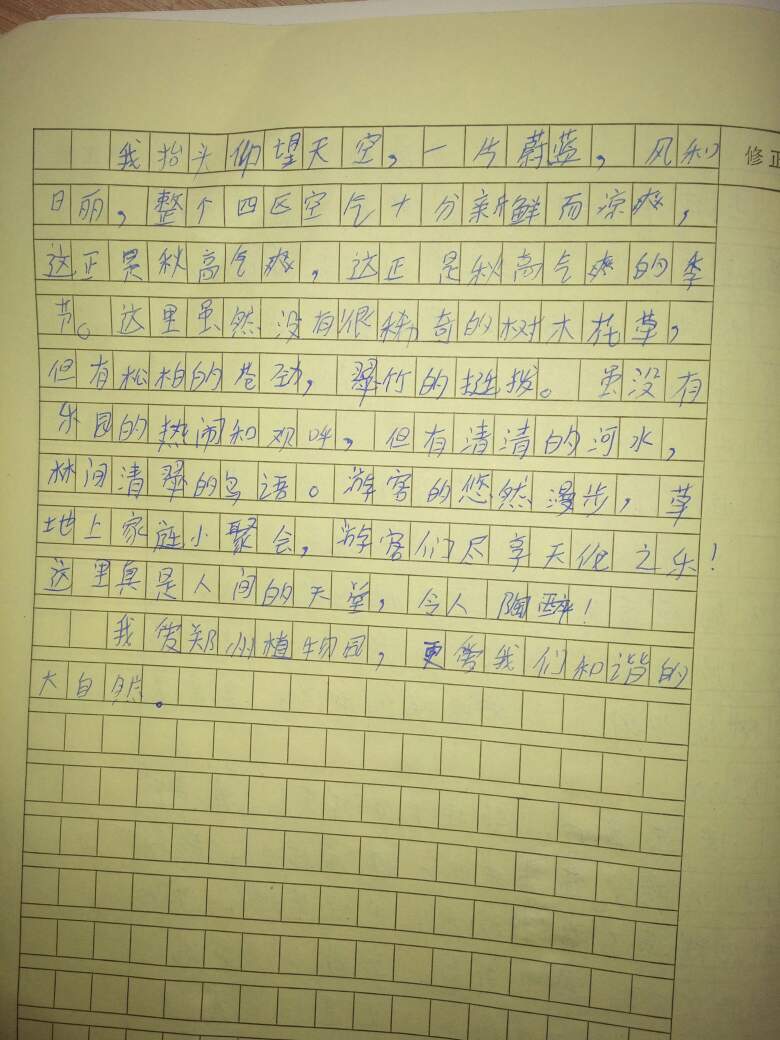 我抬头仰望天空，一片蔚蓝，风和
修正
日丽，整个四区空气十分新鲜而凉爽，
这正是秋高气爽，这正是秋高气爽的季
节。这里虽然没有很稀奇的树木花草，
但有松柏的苍劲，翠竹的挺拔。虽没有
乐园的热闹和欢呼，但有清清的河水，
林间清翠的鸟语。游客的悠然漫步，草
地上家庭小聚会，游客们尽享天伦之乐！
这里真是人间的天堂，令人陶醉！
我爱郑州植物园，更爱我们和谐的
大自然。